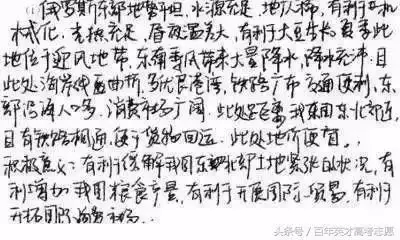 俄罗斯东部地势平坦,水源充足,地广人稀,有利于机
械化,光热充足,昼夜温差大,有利于大豆生长,夏季此
地位于迎风地带,东南季风带来大量降水,降水充沛,且
此处海岸线曲折,多优良港湾,铁路广布交通便利,东
部沿海人口多,消费市场广阔,此处距离我国东北部近,
且有铁路相通,便于货物回运,此处地价便宜。
积极意义:有利于缓解我国东北部土地紧张的状况,有
利增加我国粮食产量,有利于开展国际贸易,有利于
开拓国际海外市场.
头条号/百年英才高考志愿